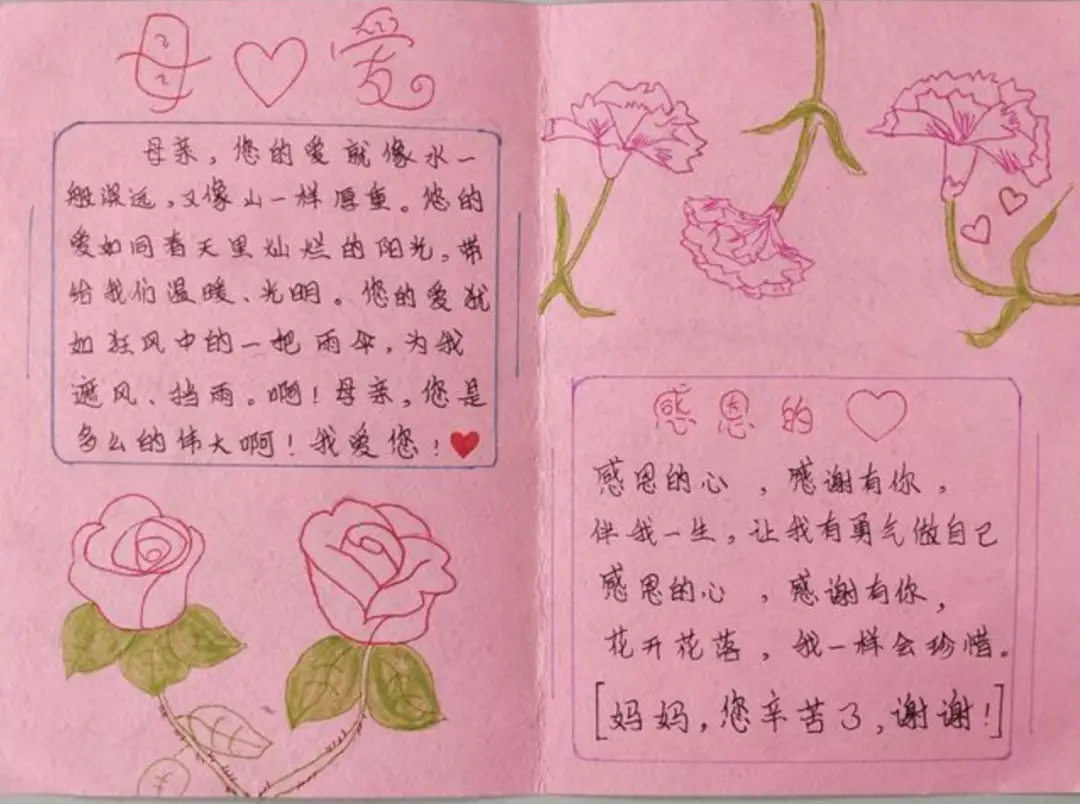 母爱
母亲，您的爱就像水一
般深远，又像山一样厚重。您的
爱如同春天里灿烂的阳光，带
给我们温暖、光明。您的爱犹
如狂风中的一把雨伞，为我
遮风、挡雨。啊！母亲，您是
多么的伟大啊！我爱您！
感恩的
感恩的心，感谢有你，
伴我一生，让我有勇气做自己
感恩的心，感谢有你，
花开花落，我一样会珍惜。
[妈妈，您辛苦了，谢谢！]